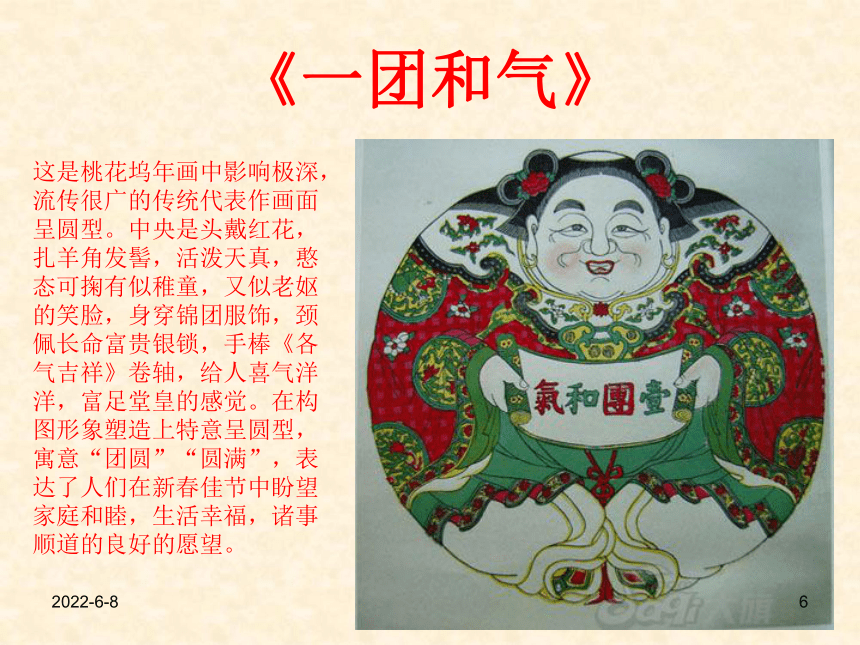 《一团和气》
这是桃花坞年画中影响极深，
流传很广的传统代表作画面
呈圆型。中央是头戴红花，
扎羊角发髻，活泼天真，憨
态可掬有似稚童，又似老妪
的笑脸，身穿锦团服饰，颈
佩长命富贵银锁，手棒《各
气吉祥》卷轴，给人喜气洋
洋，富足堂皇的感觉。在构
图形象塑造上特意呈圆型，
寓意“团圆”“圆满”，表
达了人们在新春佳节中盼望
家庭和睦，生活幸福，诸事
顺道的良好的愿望。
氣和團壹
2022-6-8
6